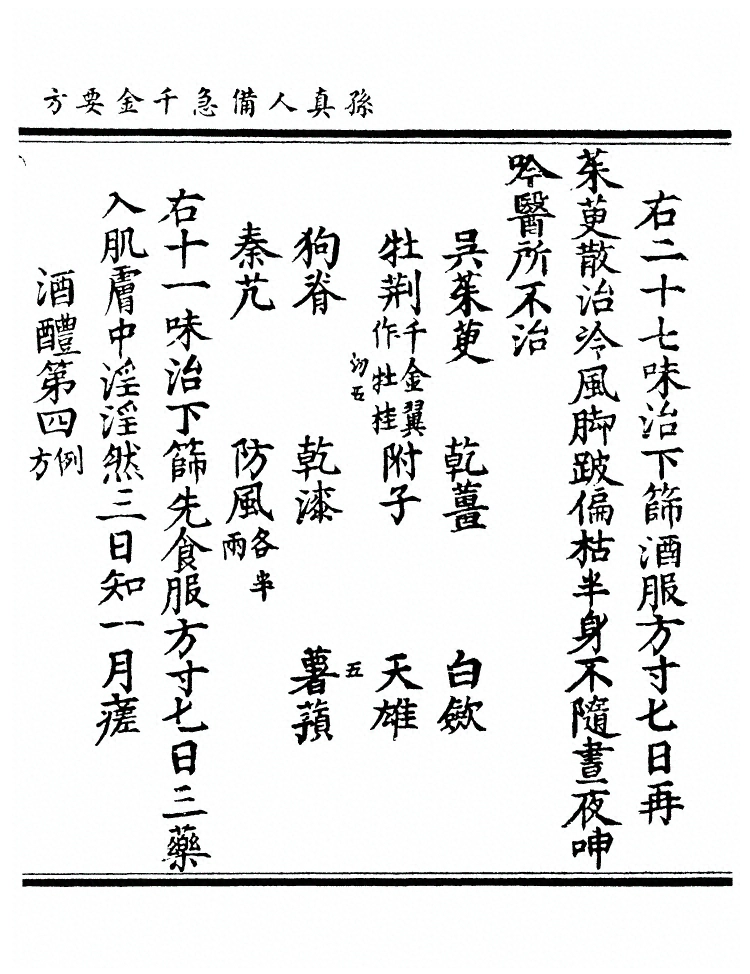 孫真人備急千金要方
右二十七味治下篩酒服方寸匕日再
茱萸散治冷風脚跛偏枯半身不隨晝夜呻
吟醫所不治
吳茱萸 乾薑 白歛
牡荆千金翼作牡桂 附子 天雄
狗脊 乾漆 薯蕷
秦艽 防風各半兩
右十一味治下篩先食服方寸匕日三藥
入肌膚中淫淫然三日知一月瘥
酒醴第四例方